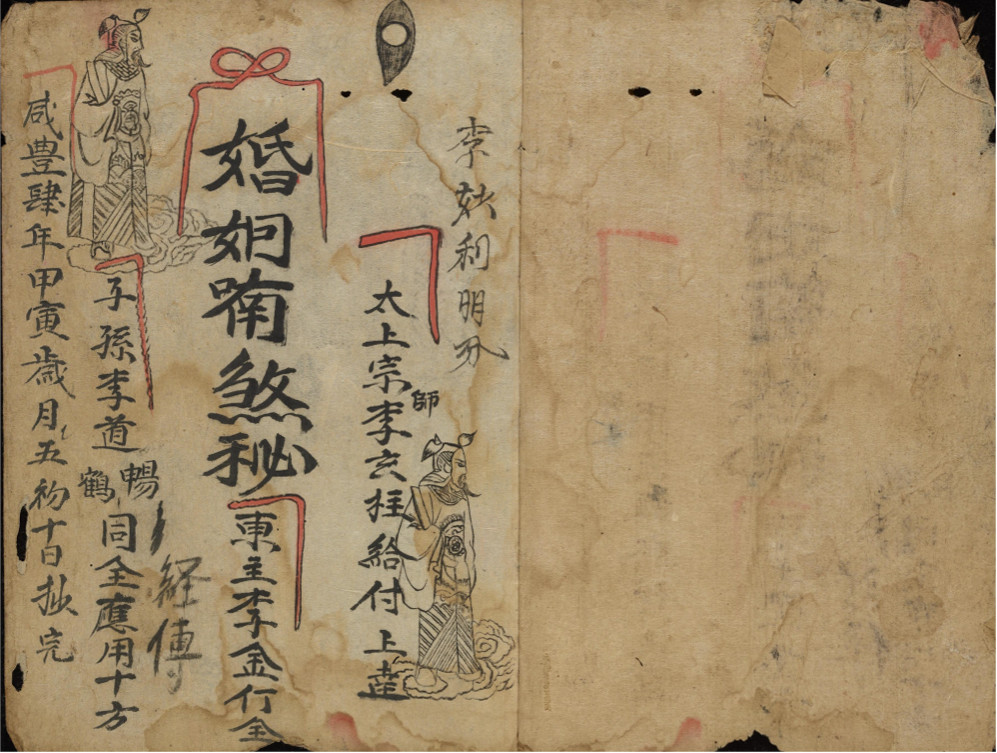 李妏利明承
太上宗師李玄拄給付上達
婚姻喃煞秘
東主李金行全
經傳
子孫李道暢鶴同全應用十方
咸豊肆年甲寅歲月五初十日抄完